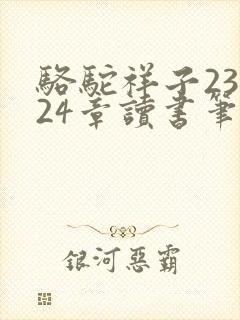 駱駝祥子23
24章讀書筆
銀河惡霸